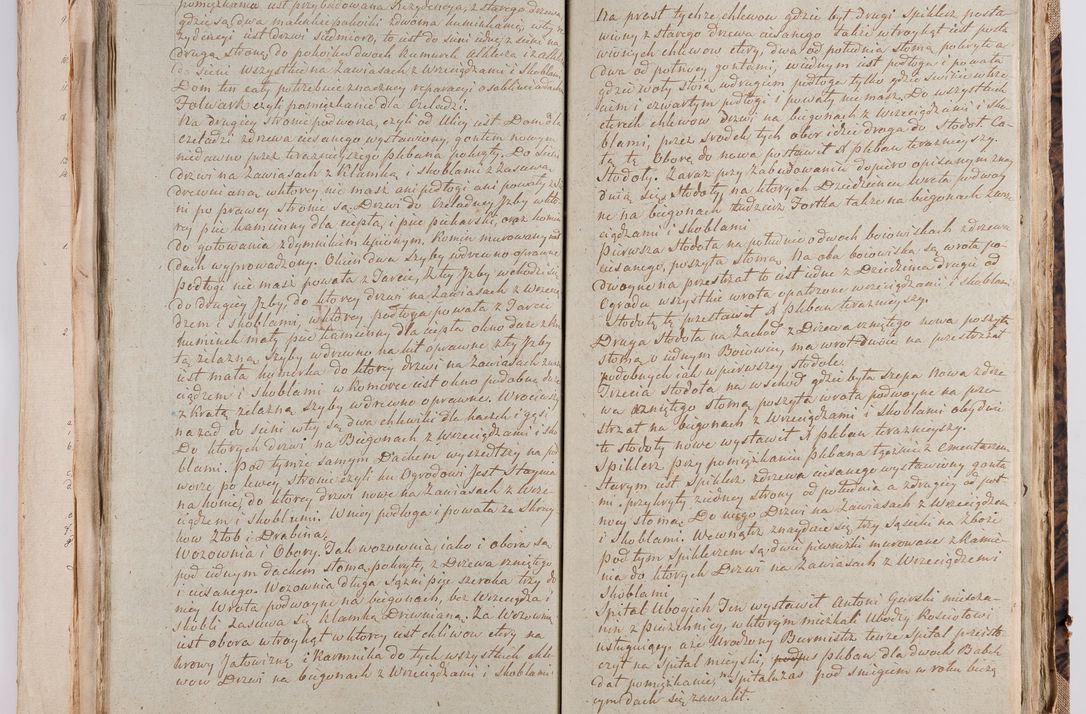 pomięszkania iest przybudowana Rezydencya z starego drzewa,
gdzie są dwa maleńkie pokoiki z dwoma kuminkami, w tey re-
zydencyi iest drzwi siedmioro, to iest do sieni iedne, z sieni na
drugą stronę, do pokoiku dwoch kumorek
do sieni wszystkie na Zawiasach z Wrzeciądzami i Skoblami
Dom ten cały potrzebuie znaczney reparacyi osobliwie dach
Folwark czyli pomięszkanie dla Czeladzi.
Na drugiey stronie podworza, czyli od Ulicy iest Dom dla
czeladzi z drzewa ciesanego wystawiony, gontem nowym
niedawno przez teraznieyszego plebana pokryty. Do sieni
drzwi na Zawiasach z Klamką i Skoblami z Zasuwą
drewnianą, w ktorey nie masz ani podłogi ani powały z sie-
ni po prawey stronie są Drzwi do Czeladney Izby w kto-
rey piec kamienny dla ciepła, i piec piekarski, oraz komin
do gotowania z dymnikiem lepionym, Komin murowany nad
dach wyprowadzony. Okien dwa szyby w drewno oprawne
Podłogi nie masz powała z Tarcic, z tey Izby wchodzi się
do drugiey Izby, do ktorey drzwi na Zawiasach z Wrzecią-
dzem i skoblami, w ktorey podłoga powała z Tarcic
kuminek mały piec kamienny dla ciepła okno duże z kra-
tą zelazną Szyby w drewno na kit oprawne z tey Izby
iest mała komorka do ktorey drzwi na Zawiasach z wrze-
ciądzem i Skoblami w Komorce iest okno podobne duże
z Kratą zelazną Szyby w drewno oprawne. Wrociwszy
nazad do sieni w tey są dwa chlewiki dla kaczek i gęsi
Do ktorych drzwi na Biegonach z Wrzeciądzami i sko-
blami. Pod tymże samym Dachem wyszedłszy na pod-
worze po lewey stronie czyli ku Ogrodowi Jest Staynia
na konie, do ktorey drzwi nowe na Zawiasach z Wrze-
ciądzem i Skoblami. W niey podłoga i powała ze skory
kow Złob i Drabina.
Wozownia i Obory. Tak wozownia, iako i obora są
pod iednym dachem słomą pokryte, z Drzewa rzniętego
i ciesanego. Wozownia długa Sążni pięć szeroka trzy do
niey Wrota podwoyne na biegonach, bez Wrzeciądza i
Skobli Zasuwa się Klamką Drewnianą. Za Wozownią
iest obora w troykąt w ktorey iest chlewow cztery na
krowy Jatowiznę i Karmnika do tych wszystkich chle-
wow Drzwi na biegonach z Wrzeciądzami i Skoblami
Na prost tychże chlewow gdzie był drugi Spiklerz posta-
wiony z starego drzewa ciesanego także w troykąt iest posta
wionych chlewow cztery, dwa od południa słomą pokryte a
dwa od pułnocy gontami, w iednym iest podłoga i powała
gdzie woły stoią w drugiem podłoga tylko gdzie swinie w trze-
ciem i czwartym podłogi i powały nie masz. Do wszystkich
cterech chlewow Drzwi na biegonach z Wrzeciądzami i sko-
blami, przez srodek tych obor idzie droga do Stodoł Ca-
łą tę Oborę do nowa postawił X pleban teraznieyszy.
Stodoły. Zaraz przy Zabudowaniu dopiero opisanym znay
duią się Stodoły, na ktorych Dziedzieniec Wrota podwoy
ne na biegonach tudzież Fortka także na biegonach z wrze
ciądzami i skoblami
Pierwsza Stodoła na południe o dwoch boiowiskach z drzewa
ciesanego, poszyta słomą. Na oba boiowiska są wrota po-
dwoyne na przestrzał to iest iedne z Dziedzieńca drugie od
Ogrodu wszystkie wrota opatrzone wrzeciądzami i skoblami
Stodołę tę przestawił X pleban teraznieyszy.
Druga Stodoła na Zachod z Drzewa rzniętego nowa poszyta
słomą o iednym Boiowisku, ma wrot dwoie na przestrzał
podobnych iak w pierwszey stodole.
Trzecia Stodoła na wschod gdzie była Szopa Nowa z drze
wa rzniętego słomą poszyta wrota podwoyne na prze-
strzał na biegonach z Wrzeciądzami i Skoblami obydwie
te stodoły nowe wystawił X pleban teraznieyszy.
Spiklerz przy pomięszkaniu plebana tyczniez z Cmentarzem
Starym iest Spiklerz z drzewa ciesanego wystawiony gonta
mi przykryty z iedney strony od południa a z drugiey od puł
nocy słomą. Do niego Drzwi na Zawiasach z Wrzeciądzem
i Skoblami. Wewnątrz znayduie się trzy Sąsieki na zboże
Pod tym Spiklerzem są dwie piwniczki murowane z kamie-
nia do ktorych Drzwi na Zawiasach z Wrzeciądzemi
Skoblami
Spital Ubogich Ten wystawił Antoni Gurski miesza-
nin z Pużeńnicy, w ktorym mieszkali Ubodzy Kosciołowi
usługuiący, ale Urodzony Burmistrz tenze Spital przeisto
czył na Spital mieyski, pleban dla dwoch Babek
dał pomięszkanie, Spitalu zas pod sniegiem w roku bieżą
cym dach się zawalił.